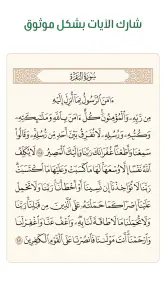 شارك الآيات بشكل موثوق
سُورَةُ البَقَرَةِ
ءَامَنَ ٱلرَّسُولُ بِمَآ أُنزِلَ إِلَيْهِ
مِن رَّبِّهِۦ وَٱلْمُؤْمِنُونَ كُلٌّ ءَامَنَ بِٱللَّهِ وَمَلَٰٓئِكَتِهِۦ
وَكُتُبِهِۦ وَرُسُلِهِۦ لَا نُفَرِّقُ بَيْنَ أَحَدٍ مِّن رُّسُلِهِۦ وَقَالُوا۟
سَمِعْنَا وَأَطَعْنَا غُفْرَانَكَ رَبَّنَا وَإِلَيْكَ ٱلْمَصِيرُ لَا يُكَلِّفُ
ٱللَّهُ نَفْسًا إِلَّا وُسْعَهَا لَهَا مَا كَسَبَتْ وَعَلَيْهَا مَا ٱكْتَسَبَتْ
رَبَّنَا لَا تُؤَاخِذْنَآ إِن نَّسِينَآ أَوْ أَخْطَأْنَا رَبَّنَا وَلَا تَحْمِلْ
عَلَيْنَآ إِصْرًا كَمَا حَمَلْتَهُۥ عَلَى ٱلَّذِينَ مِن قَبْلِنَا رَبَّنَا
وَلَا تُحَمِّلْنَا مَا لَا طَاقَةَ لَنَا بِهِۦ وَٱعْفُ عَنَّا وَٱغْفِرْ لَنَا
وَٱرْحَمْنَآ أَنتَ مَوْلَىٰنَا فَٱنصُرْنَا عَلَى ٱلْقَوْمِ ٱلْكَٰفِرِينَ